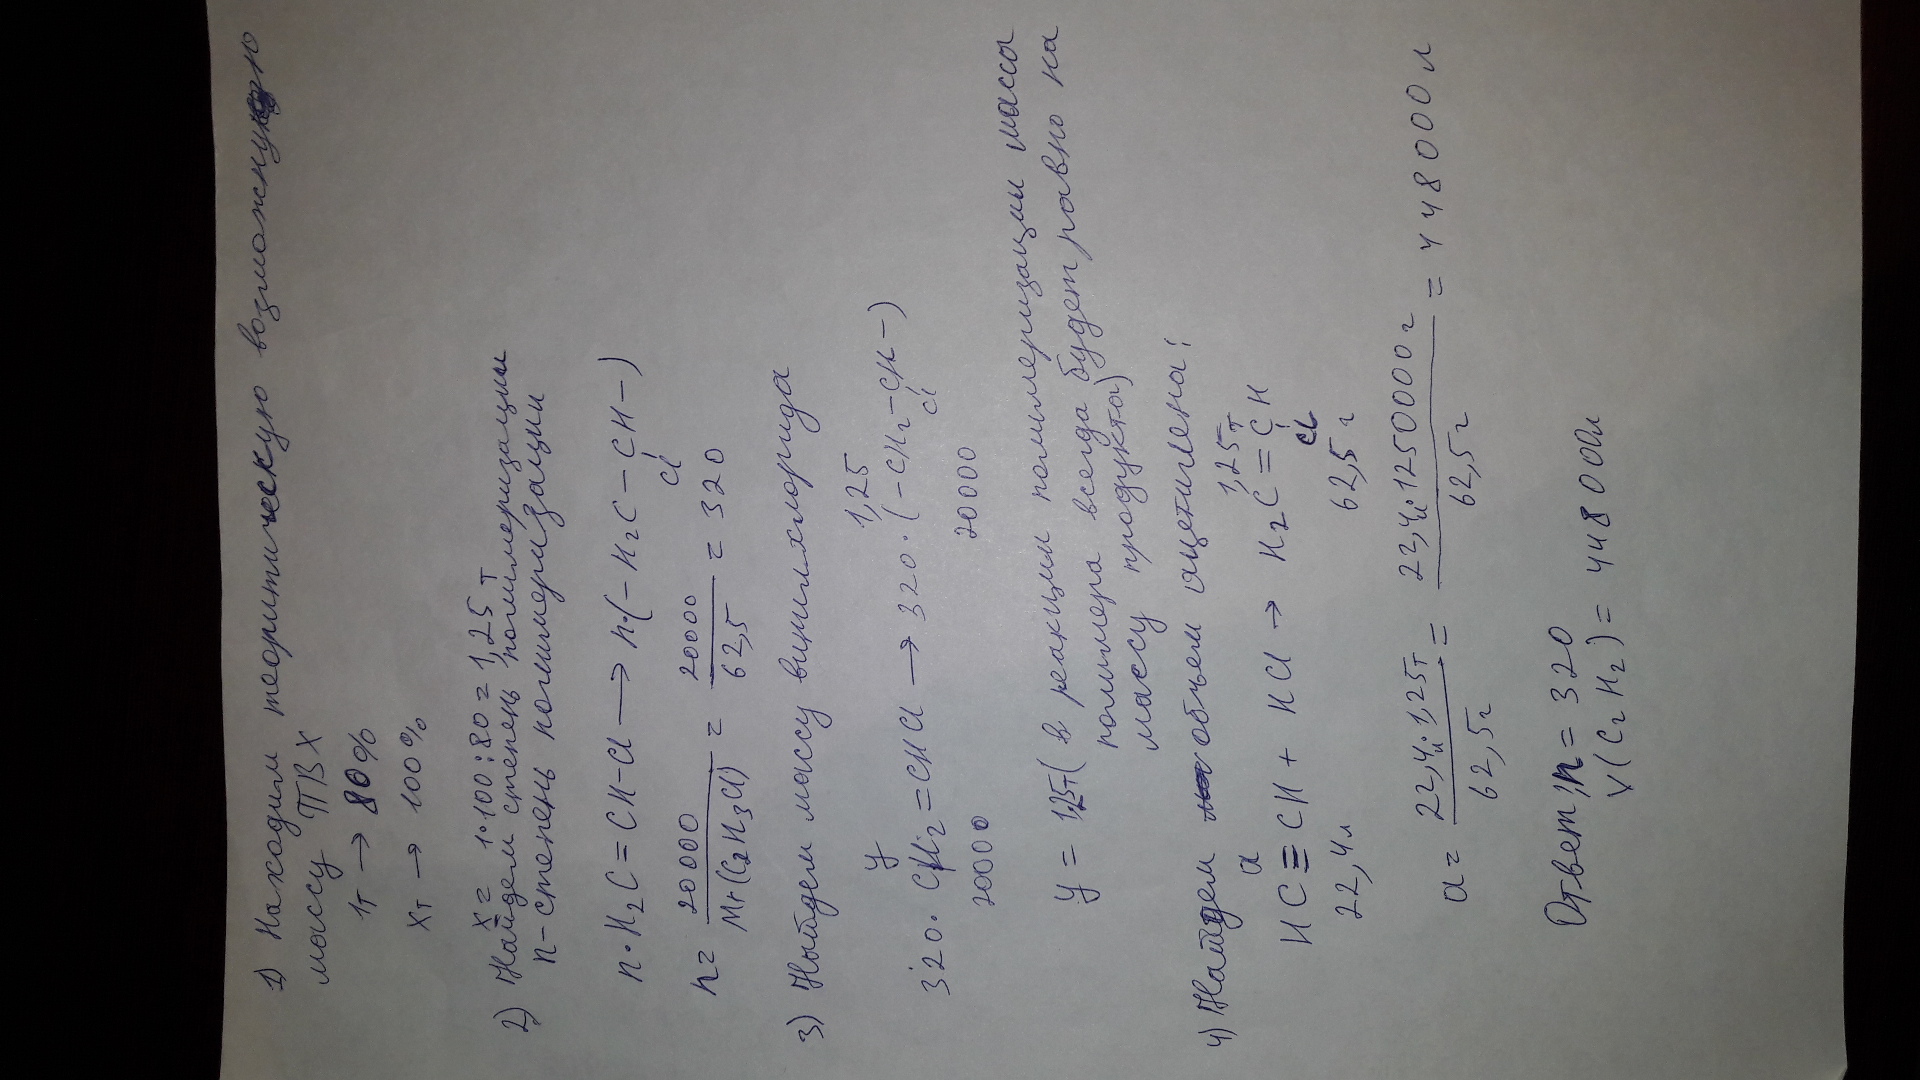 1) Находим теоритическую возможную
массу ПВХ
1т → 80%
xт → 100%
x = 1·100:80 = 1,25т
2) Найдем степень полимеризации
n - степень полимеризации
n·H2C=CH-Cl → n·(-H2C-CH-)
Cl
n = 20000 / Mr(C2H3Cl) = 20000 / 62,5 = 320
3) Найдем массу винилхлорида
y 1,25
320·CH2=CHCl → 320·(-CH2-CH-)
Cl
20000 20000
y = 1,25т (в реакции полимеризации массы
полимера всегда будет равно на
массу продукта)
4) Найдем объем ацетилена:
a 1,25т
HC≡CH + HCl → H2C=CH
Cl
22,4л 62,5г
a = 22,4л·1,25т / 62,5г = 22,4л·1250000г / 62,5г = 448000л
Ответ: n = 320
V(C2H2) = 448000л